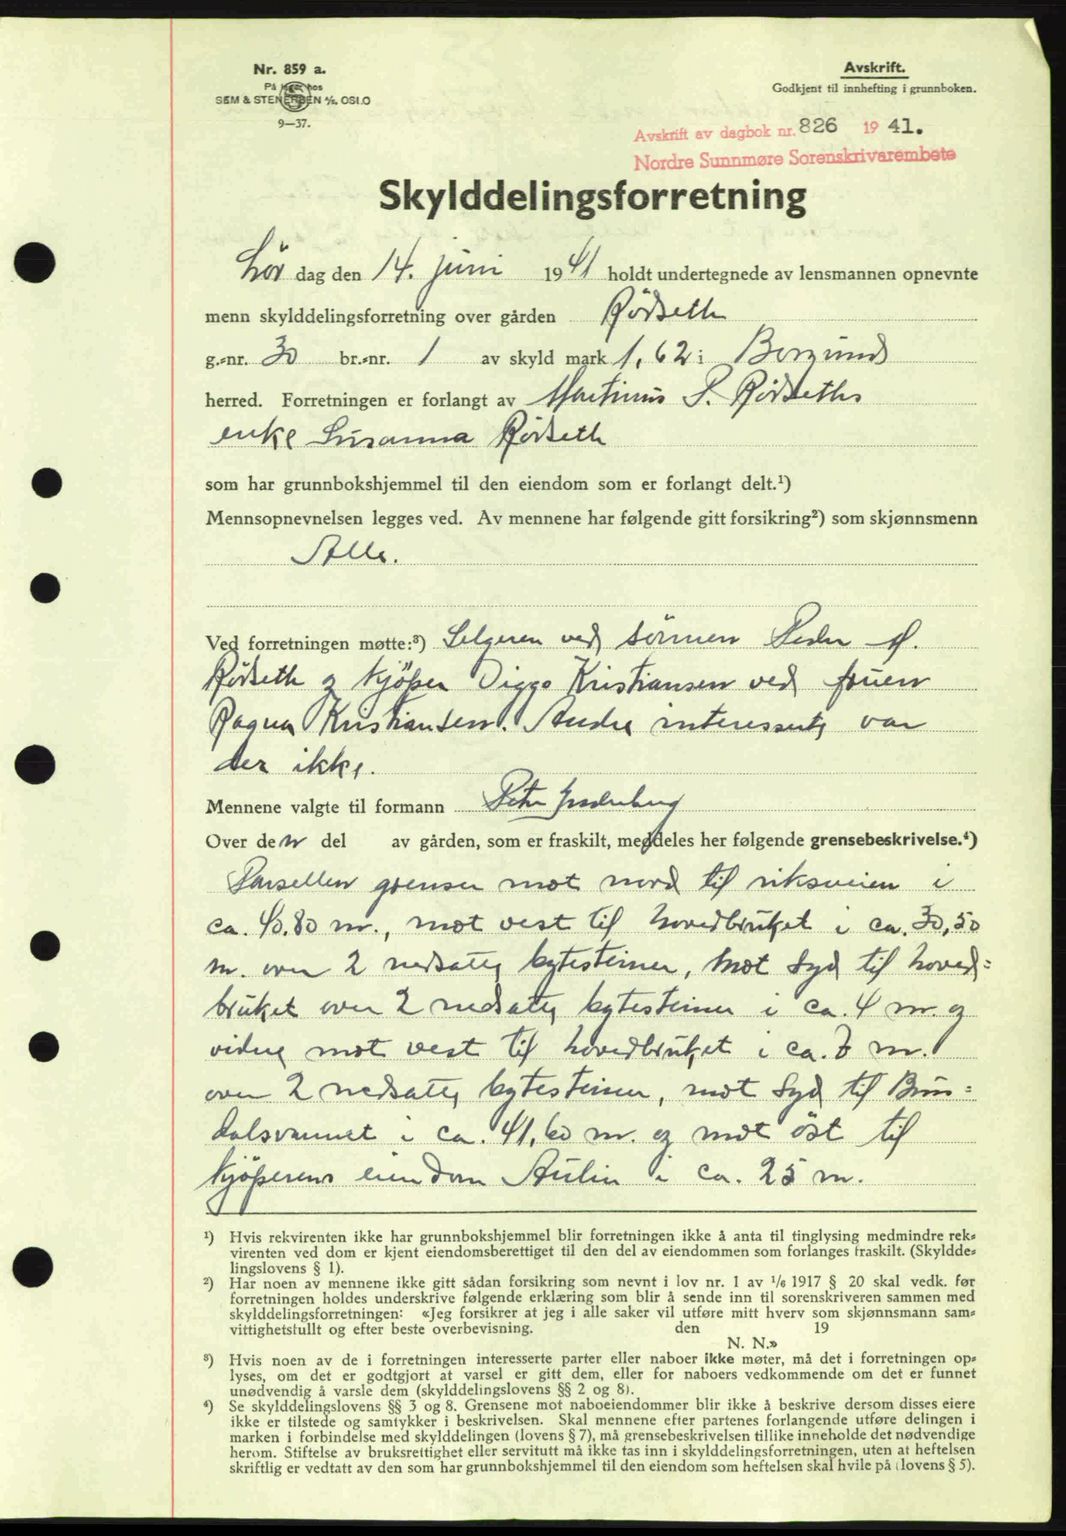 Nr. 859 a.
På lager hos
SEM & STENERSEN A/S, OSLO
9—37.
Avskrift.
Godkjent til innhefting i grunnboken.
Avskrift av dagbok nr. 826 19 41.
Nordre Sunnmøre Sorenskrivarembete
Skylddelingsforretning
Lør dag den 14. juni 1941 holdt undertegnede av lensmannen opnevnte
menn skylddelingsforretning over gården Rödseth
g.-nr. 30 br.-nr. 1 av skyld mark 1,62 i Borgund
herred. Forretningen er forlangt av Martinus P. Rödseths
enke Susanna Rödseth
som har grunnbokshjemmel til den eiendom som er forlangt delt.¹)
Mennsopnevnelsen legges ved. Av mennene har følgende gitt forsikring²) som skjønnsmenn
Alle.
Ved forretningen møtte:³) Selgeren ved sönnen Peder M.
Rödseth og kjöper Viggo Kristiansen ved fruen
Ragna Kristiansen. Andre interesserte var
der ikke.
Mennene valgte til formann Peter
Over den del av gården, som er fraskilt, meddeles her følgende grensebeskrivelse.⁴)
Parsellen grenser mot nord til riksveien i
ca. 40.80 m., mot vest til hovedbruket i ca. 30,50
m. over 2 nedsatte bytesteiner, mot syd til hoved=
bruket over 2 nedsatte bytesteiner i ca. 4 m. og
videre mot vest til hovedbruket i ca. 7 m.
over 2 nedsatte bytesteiner, mot syd til Brus=
dalsvannet i ca. 41,60 m. og mot öst til
kjöperens eiendom Aulin i ca. 25 m.
¹) Hvis rekvirenten ikke har grunnbokshjemmel blir forretningen ikke å anta til tinglysing medmindre rek-
virenten ved dom er kjent eiendomsberettiget til den del av eiendommen som forlanges fraskilt. (Skyldde-
lingslovens § 1).
²) Har noen av mennene ikke gitt sådan forsikring som nevnt i lov nr. 1 av ¹/₆ 1917 § 20 skal vedk. før
forretningen holdes underskrive følgende erklæring som blir å sende inn til sorenskriveren sammen med
skylddelingsforretningen: «Jeg forsikrer at jeg i alle saker vil utføre mitt hverv som skjønnsmann sam-
vittighetsfullt og efter beste overbevisning. den 19
N. N.»
³) Hvis noen av de i forretningen interesserte parter eller naboer ikke møter, må det i forretningen op-
lyses, om det er godtgjort at varsel er gitt dem, eller for naboers vedkommende om det er funnet
unødvendig å varsle dem (skylddelingslovens §§ 2 og 8).
⁴) Se skylddelingslovens §§ 3 og 8. Grensene mot naboeiendommer blir ikke å beskrive dersom disses eiere
ikke er tilstede og samtykker i beskrivelsen. Skal mennene efter partenes forlangende utføre delingen i
marken i forbindelse med skylddelingen (lovens § 7), må grensebeskrivelsen tillike inneholde det nødvendige
herom. Stiftelse av bruksrettighet eller servitutt må ikke tas inn i skylddelingsforretningen, uten at heftelsen
skriftlig er vedtatt av den som har grunnbokshjemmel til den eiendom som heftelsen skal hvile på (lovens § 5).